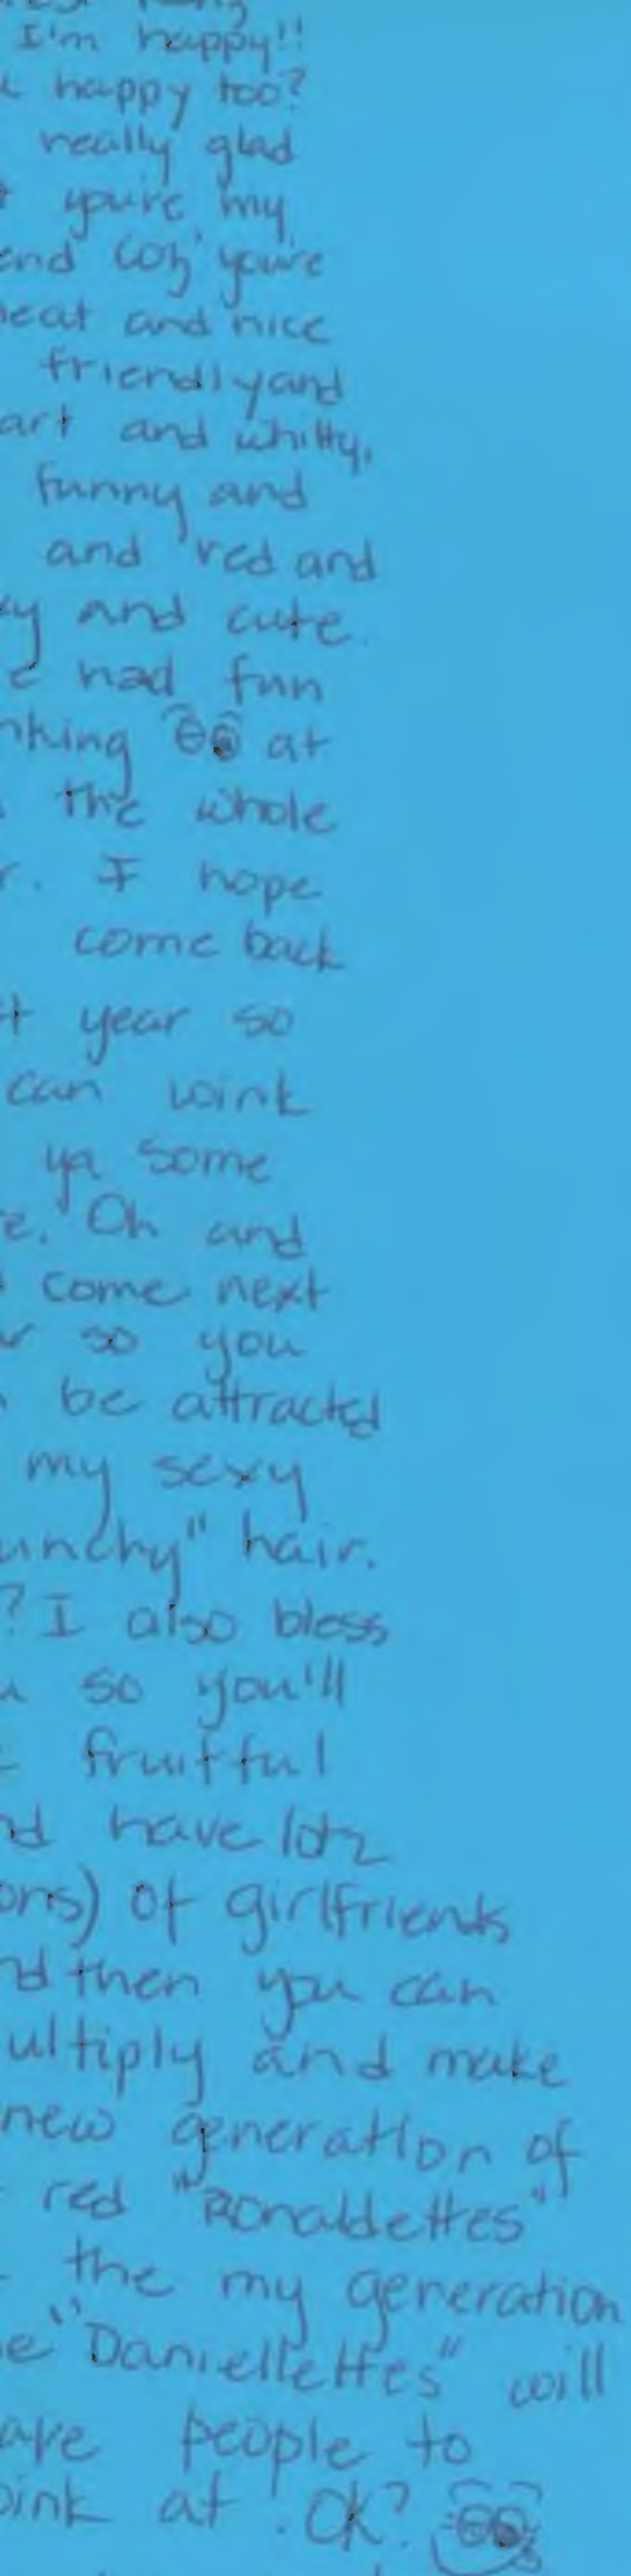 I'm happy!!
happy too?
really glad
you're my
end coz you're
neat and nice
friendly and
art and whitty,
funny and
and red and
y and cute.
e had fun
nking at
the whole
r. I hope
come back
t year so
can wink
ya some
e. Oh and
come next
r so you
be attracted
my sexy
unchy" hair.
? I also bless
u so you'll
fruitful
nd have lotz
ons) of girlfriends
nd then you can
ultiply and make
new generation of
red "Ronaldettes"
the my generation
e "Daniellettes" will
ave people to
oink at. Ok?